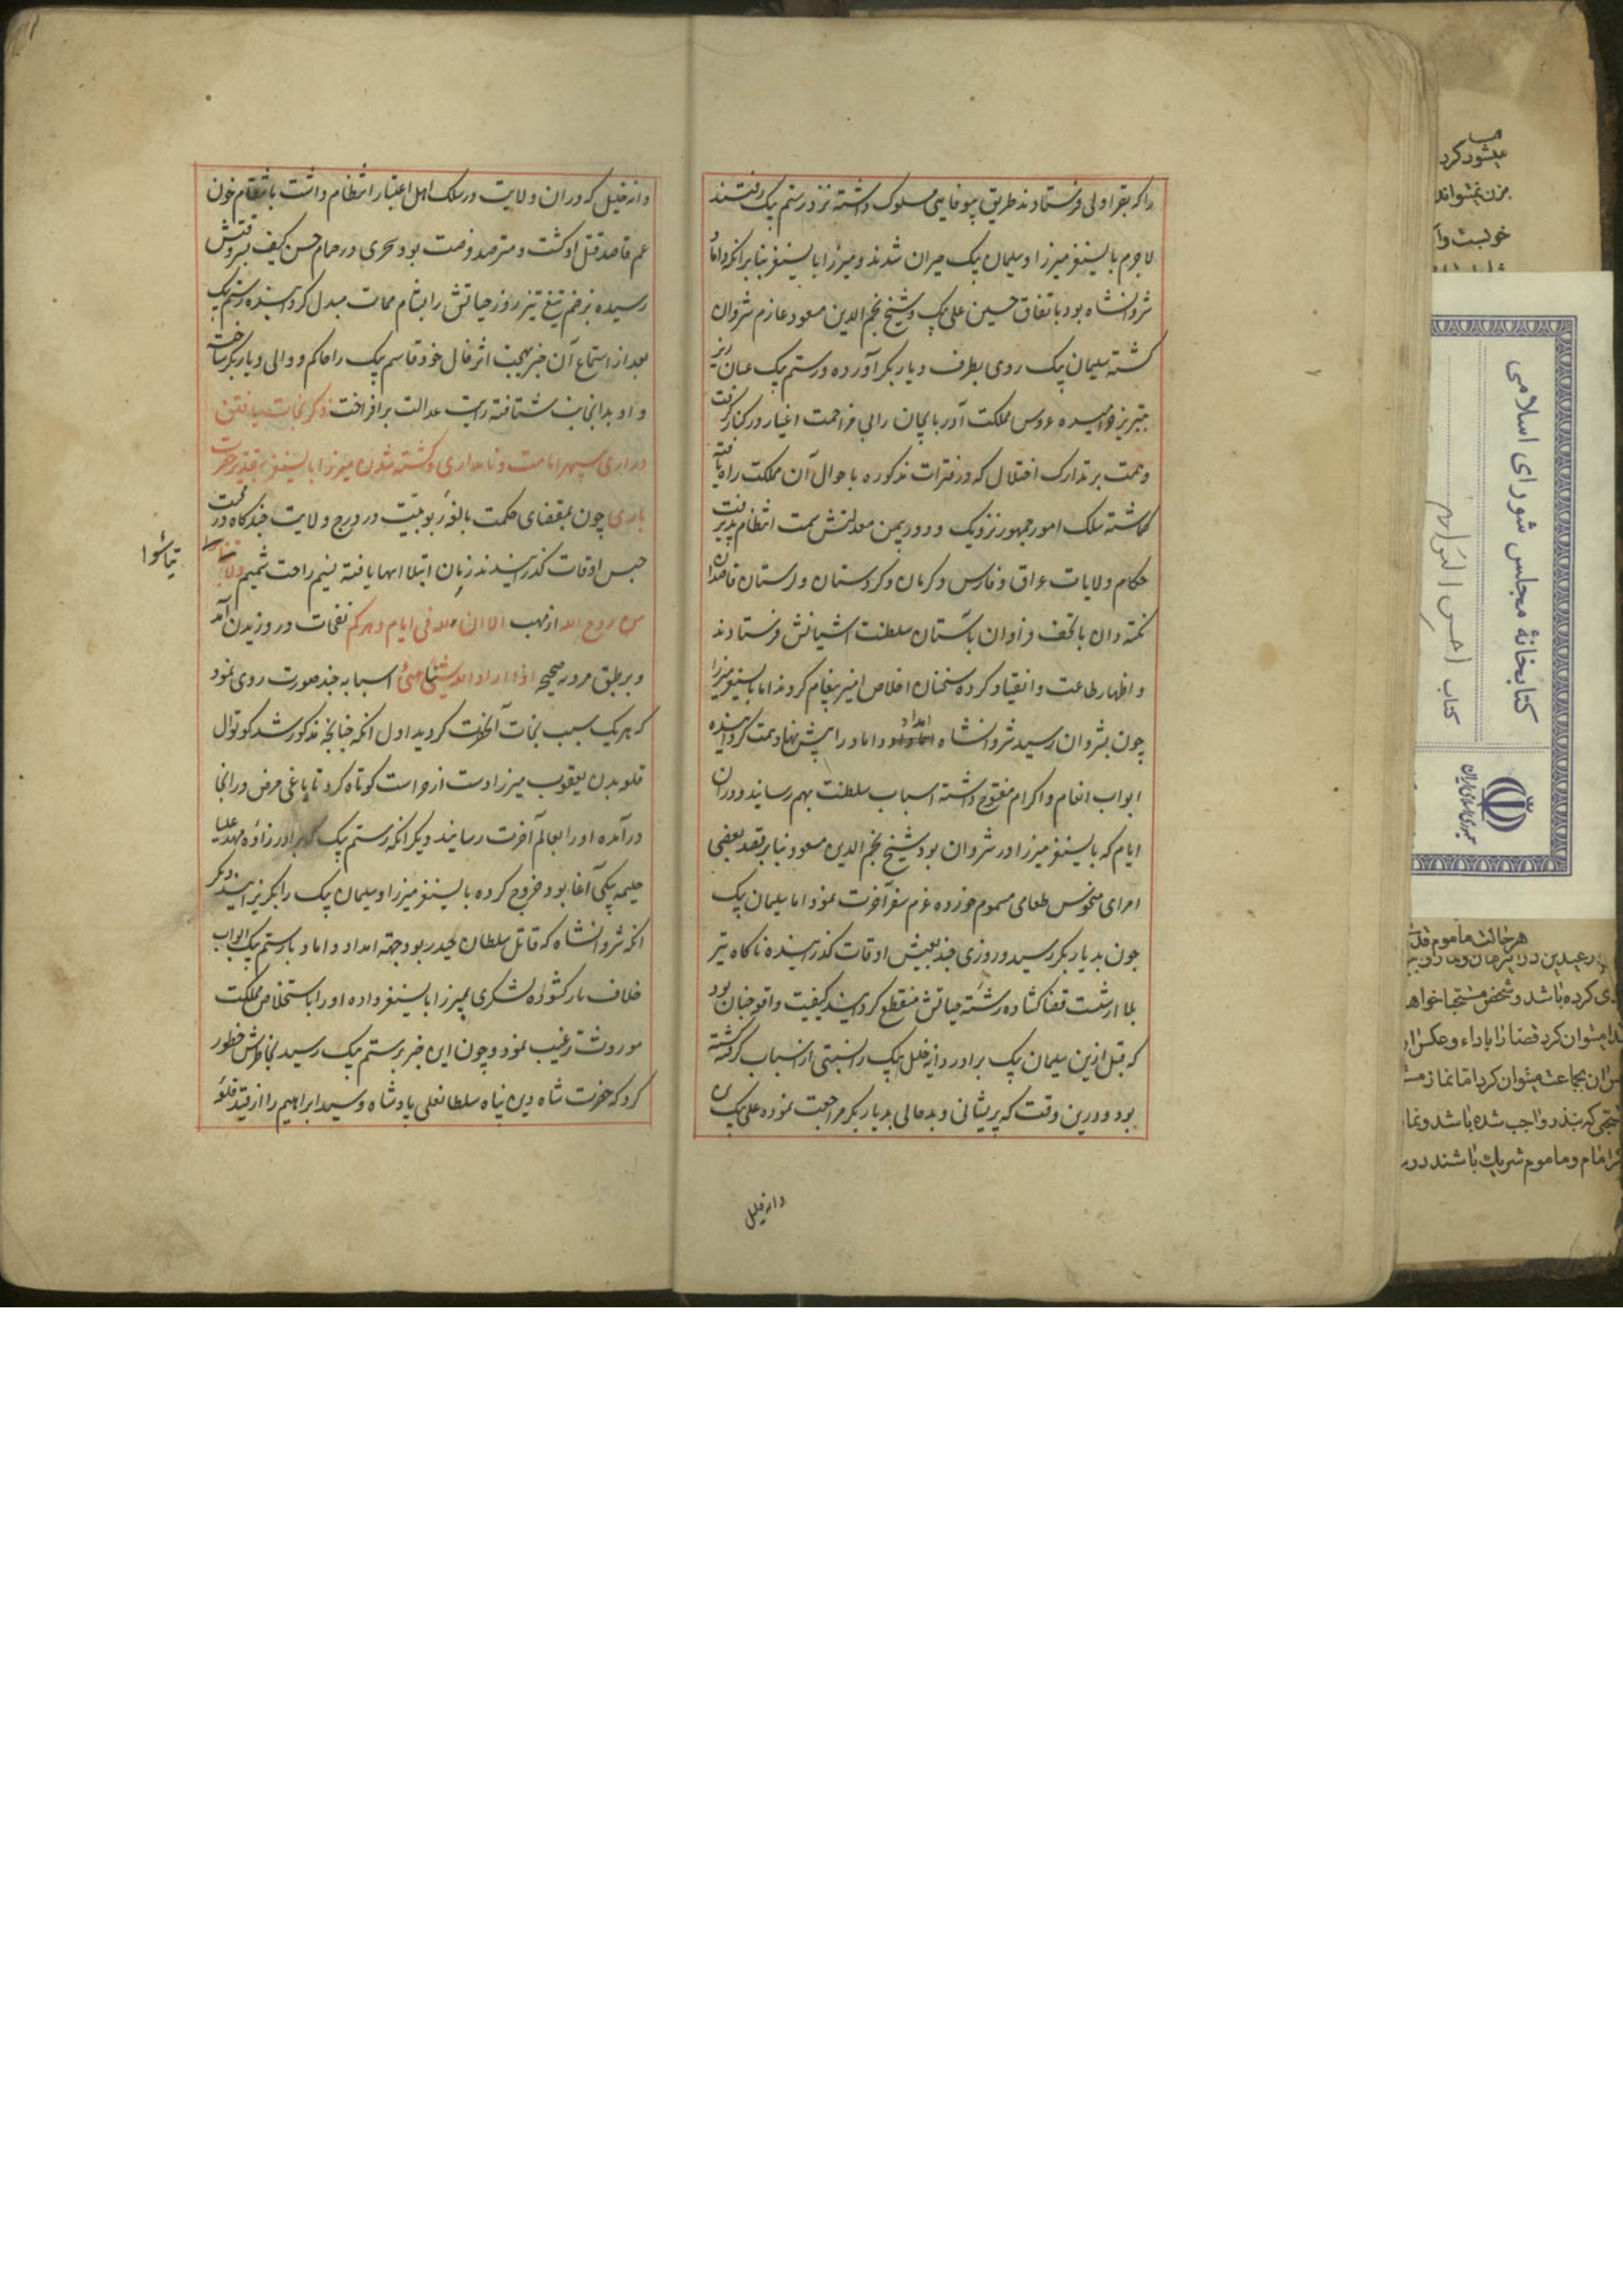 را که بقراولی فرستادند طریق بیوفایی مسلوک داشته نزد رستم بیک رفتند
لاجرم بایسنغر میرزا و سلیمان بیک حیران شدند و میرزا بایسنغر بنا برانکه داماد
شروانشاه بود باتفاق حسین علی بیک و شیخ نجم الدین مسعود عازم شروان
کشته سلیمان بیک روی بطرف دیار بکر آورده و رستم بیک عنان ریز
بتبریز خرامیده عروس مملکت آذربایجان را بی مزاحمت اغیار در کنار گرفت
و همت بر تدارک اختلال که در فترات مذکوره باحوال آن مملکت راه یافته
کماشته سلک امور جمهور نزدیک و دور بیمن معدلتش سمت انتظام پذیرفت
حکام ولایات عراق و فارس و کرمان و کردستان و لرستان قاصدان
نکته دان با تحف فراوان بآستان سلطنت آشیانش فرستادند
و اظهار طاعت و انقیاد کرده سخنان اخلاص آمیز پیغام کردند اما بایسنغر میرزا
چون بشروان رسید شروانشاه امداد داماد را پیش نهاد همت کردانیده
ابواب انعام و اکرام مفتوح داشته اسباب سلطنت بهم رسانید و دران
ایام که بایسنغر میرزا در شروان بود شیخ نجم الدین مسعود بنا بر قصد بعضی
امرای منحوس طعامی مسموم خورده عزم سفر آخرت نمود اما سلیمان بیک
چون بدیار بکر رسید و روزی چند بعیش اوقات کذرانیده ناکاه تیر
بلا از شست قضا کشاده رشته حیاتش منقطع کردانید کیفیت واقعه چنان بود
که قبل ازین سلیمان بیک برادر دانه خلیل بیک را بسببی از اسباب کشته
بود و درین وقت که پریشانی و بدحالی بدیار بکر مراجعت نموده علی بیک
دانه خلیل
دانه خلیل که دران ولایت در سلک اهل اعتبار انتظام داشت بانتقام خون
عم قاصد قتل او کشت و مترصد فرصت بود سحری در حمام حسن کیف بسروقتش
رسیده بزخم تیغ تیز روز حیاتش را بشام ممات مبدل کردانیده رستم بیک
بعد از استماع آن خبر بهجت اثر خال خود قاسم بیک را حاکم و والی دیاربکر ساخت
و او بدانجانب شتافته رایت عدالت برافراخت ذکر نجات یافتن
دراری سپهر امامت و نامداری و کشته شدن میرزا بایسنغر بتقدیر حضرت
باری چون بمقتضای حکمت بالغه ربوبیت در درج ولایت چند کاه در تحت
حبس اوقات کذرانیدند زمان ابتلا انتها یافته نسیم راحت شمیم ولا
تیاسوا
من روح الله از مهب الا ان لله فی ایام دهرکم نفحات در وزیدن آمد
و بر طبق مرده صحیحه اذا اراد الله شیئا هیئ اسبابه چند صورت روی نمود
که هر یک سبب نجات آنحضرت کردید اول انکه چنانچه مذکور شد کوتوال
قلعه بدن یعقوب میرزا دست از حراست کوتاه کرد تا یاغی مرض در انجا
درآمده او را بعالم آخرت رسانید دیکر انکه رستم بیک که برادر زاده مهد علیا
حلیمه بیکی آغا بود خروج کرده بایسنغر میرزا و سلیمان بیک را بکریزانید دیکر
انکه شروانشاه که قاتل سلطان حیدر بود جهة امداد داماد با رستم بیک ابواب
خلاف باز کشوده لشکری بمیرزا بایسنغر داده او را باستخلاص مملکت
موروث ترغیب نمود و چون این خبر برستم بیک رسید بخاطرش خطور
کرد که حضرت شاه دین پناه سلطانعلی پادشاه و سید ابراهیم را از قید قلعه
کتابخانهٔ مجلس شورای اسلامی
کتاب احسن التواریخ
جمهوری اسلامی ایران